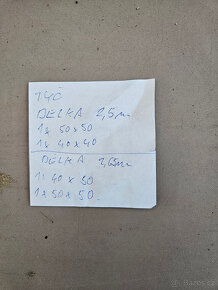 TYČ
DELKA 2,5m
1x 50x50
1x 40x40
DELKA 2,65m
1x 40x50
1x50x50